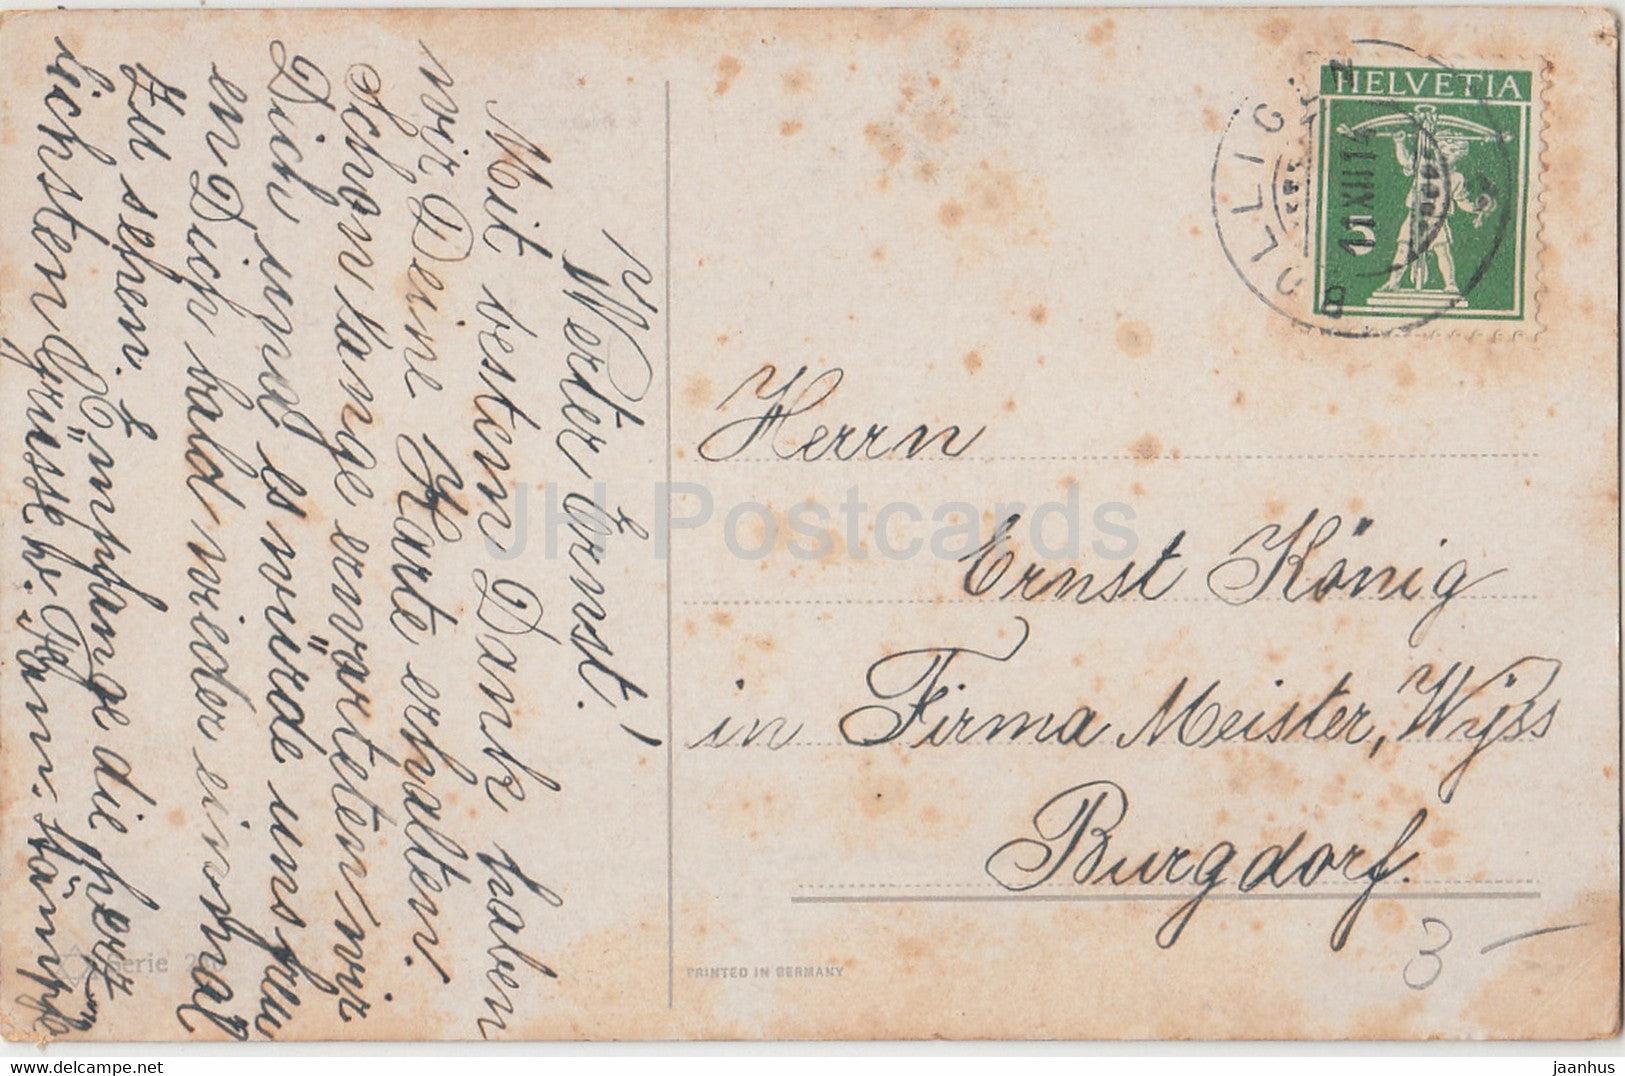 Werter Ernst!
Mit bestem Dank haben
wir Deine Karte erhalten.
Schon lange erwarteten wir
Dich und es würde uns freu
en Dich bald wieder einmal
zu sehen. Empfange die herz
lichsten Grüsse v. Fam. Stämpfli
HELVETIA
5
BOLLIGEN
11 XII 14
Herrn
Ernst König
in Firma Meister, Wÿss
Burgdorf.
3 —
Serie
PRINTED IN GERMANY
JH Postcards
jaanhus